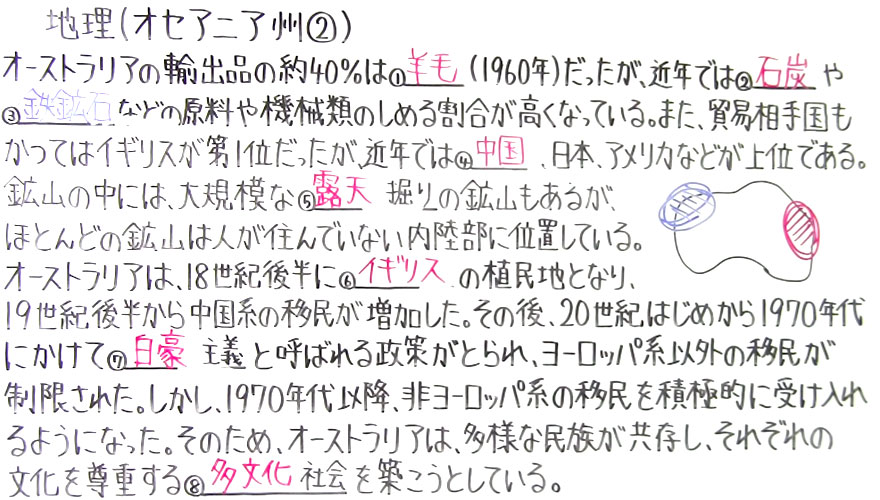 地理(オセアニア州②)
オーストラリアの輸出品の約40%は①羊毛(1960年)だったが、近年では②石炭や
③鉄鉱石などの原料や機械類のしめる割合が高くなっている。また、貿易相手国も
かつてはイギリスが第1位だったが、近年では④中国、日本、アメリカなどが上位である。
鉱山の中には、大規模な⑤露天掘りの鉱山もあるが、
ほとんどの鉱山は人が住んでいない内陸部に位置している。
オーストラリアは、18世紀後半に⑥イギリスの植民地となり、
19世紀後半から中国系の移民が増加した。その後、20世紀はじめから1970年代
にかけて⑦白豪主義と呼ばれる政策がとられ、ヨーロッパ系以外の移民が
制限された。しかし、1970年代以降、非ヨーロッパ系の移民を積極的に受け入れ
るようになった。そのため、オーストラリアは、多様な民族が共存し、それぞれの
文化を尊重する⑧多文化社会を築こうとしている。